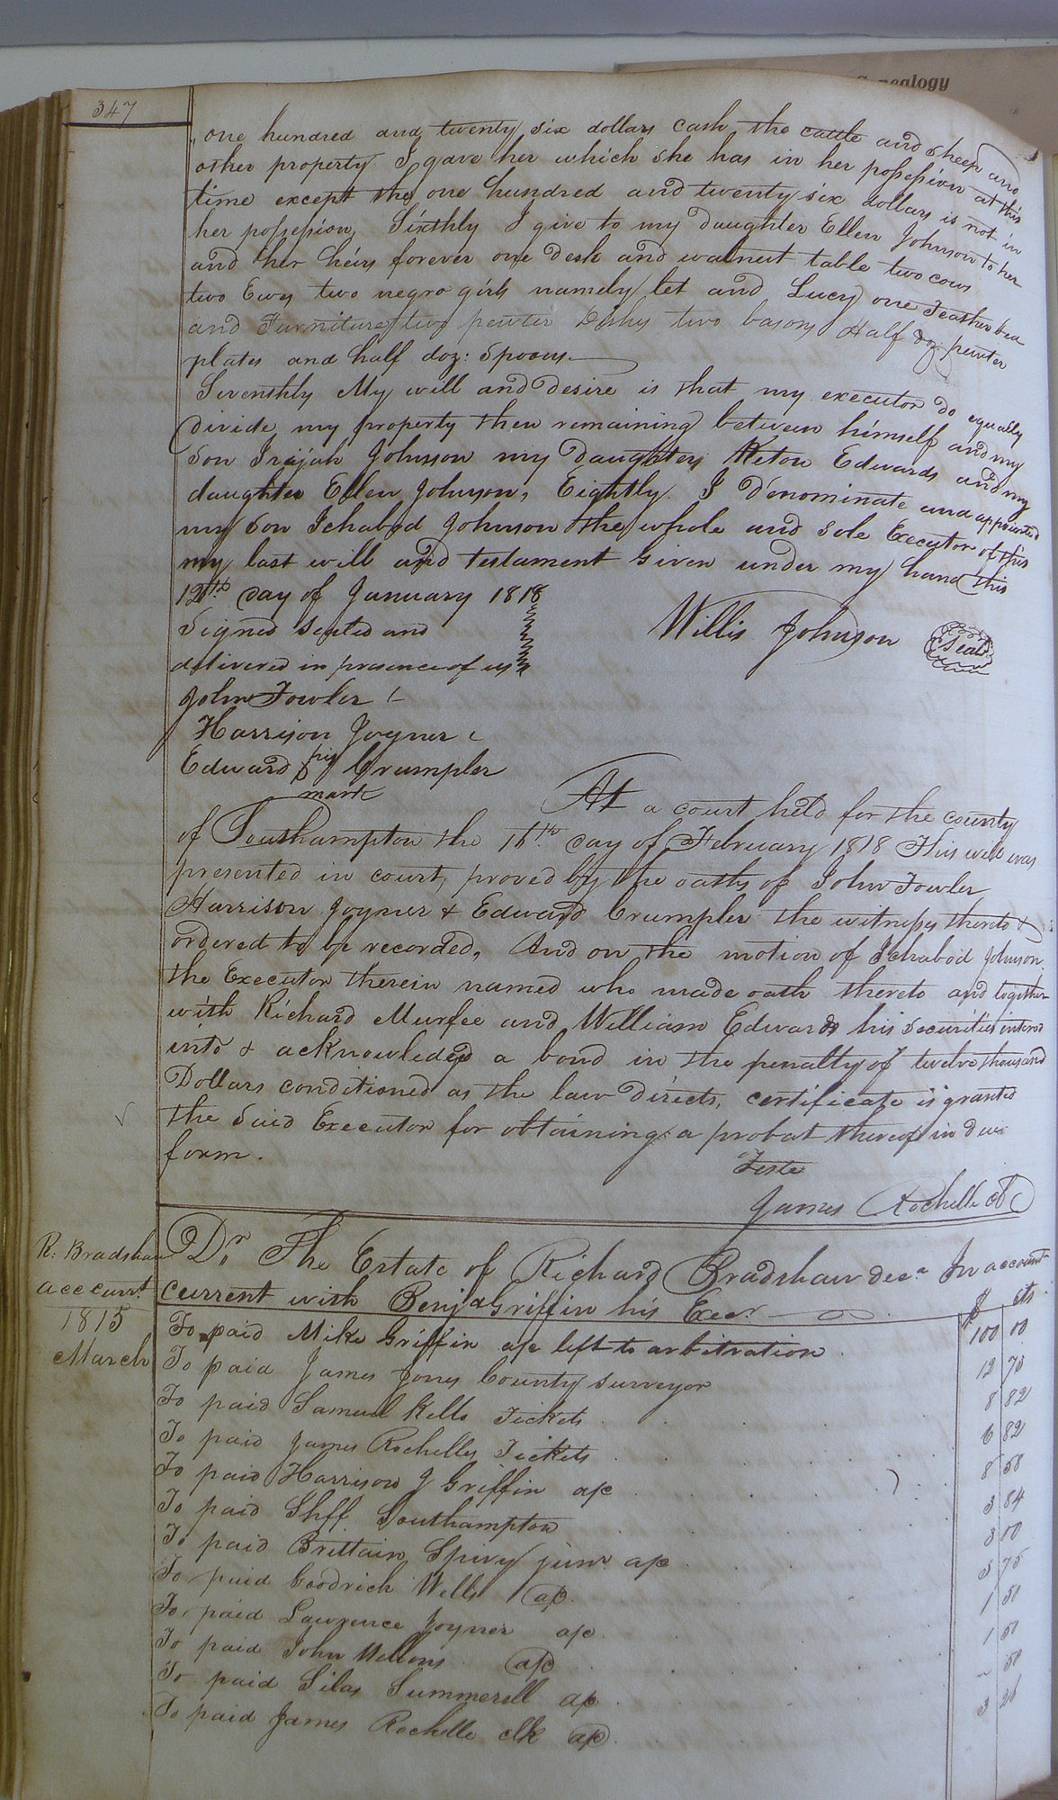 Genealogy
347
one hundred and twenty six dollars cash the cattle and sheep and
other property I gave her which she has in her possession at this
time except the one hundred and twenty six dollars is not in
her possession, Sixthly I give to my daughter Ellen Johnson to her
and her heirs forever one desk and walnut table two cows
two Ewes two negro girls namely let and Lucy one Feather bed
and Furniture two pewter Dishes two basons Half doz pewter
plates and half doz: Spoons
Seventhly My will and desire is that my executor do equally
divide my property then remaining between himself and my
son Irajah Johnson my Daughters Edwards and my
daughter Ellen Johnson, Eightly I Denominate and appointed
my son Ichabod Johnson the whole and sole Executor of this
my last will and testament Given under my hand this
12th day of January 1818
Signed sealed and
Willis Johnson Seal
delivered in presence of us
John Fowler
Harrison Joyner
Edward his Crumpler
mark
At a court held for the county
of Southampton the 16th day of February 1818 This will was
presented in court, proved by the oaths of John Fowler
Harrison Joyner & Edward Crumpler the witness thereto &
ordered to be recorded, And on the motion of Ichabod Johnson
the Executor therein named who made oath thereto and together
with Richard Murfee and William Edwards his securities entered
into & acknowledged a bond in the penalty of twelve thousand
Dollars conditioned as the law directs, certificate is granted
the said Executor for obtaining a probat thereof in due
form.
Teste
James Rochelle
R: Bradshaw
acccurrt
1815
March
Dr The Estate of Richard Bradshaw decd In account
current with Benja Griffin his Exer
$ cts
To paid Mike Griffin a/c left to arbitration 100 00
To paid James Jones County surveyor 12 75
To paid Samuel Kello Tickets 8 82
To paid James Rochelles Tickets 6 82
To paid Harrison J Griffin a/c 8 50
To paid Shff Southampton 3 84
To paid Brittain Spivy junr a/c 3 00
To paid Goodrich Wells a/c 3 75
To paid Lawrence Joyner a/c 1 50
To paid John Wellons a/c 1 50
To paid Silas Summerell a/c ~ 50
To paid James Rochelle clk a/c 3 26